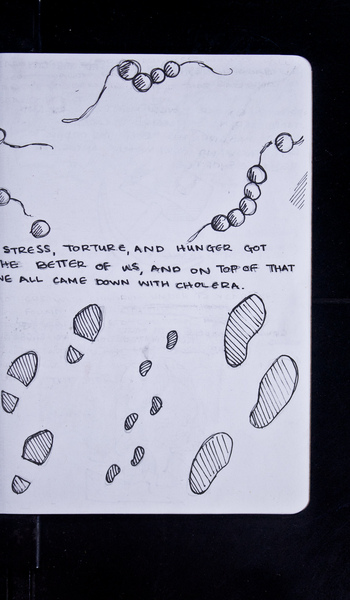 STRESS, TORTURE, AND HUNGER GOT
HE BETTER OF US, AND ON TOP OF THAT
WE ALL CAME DOWN WITH CHOLERA.